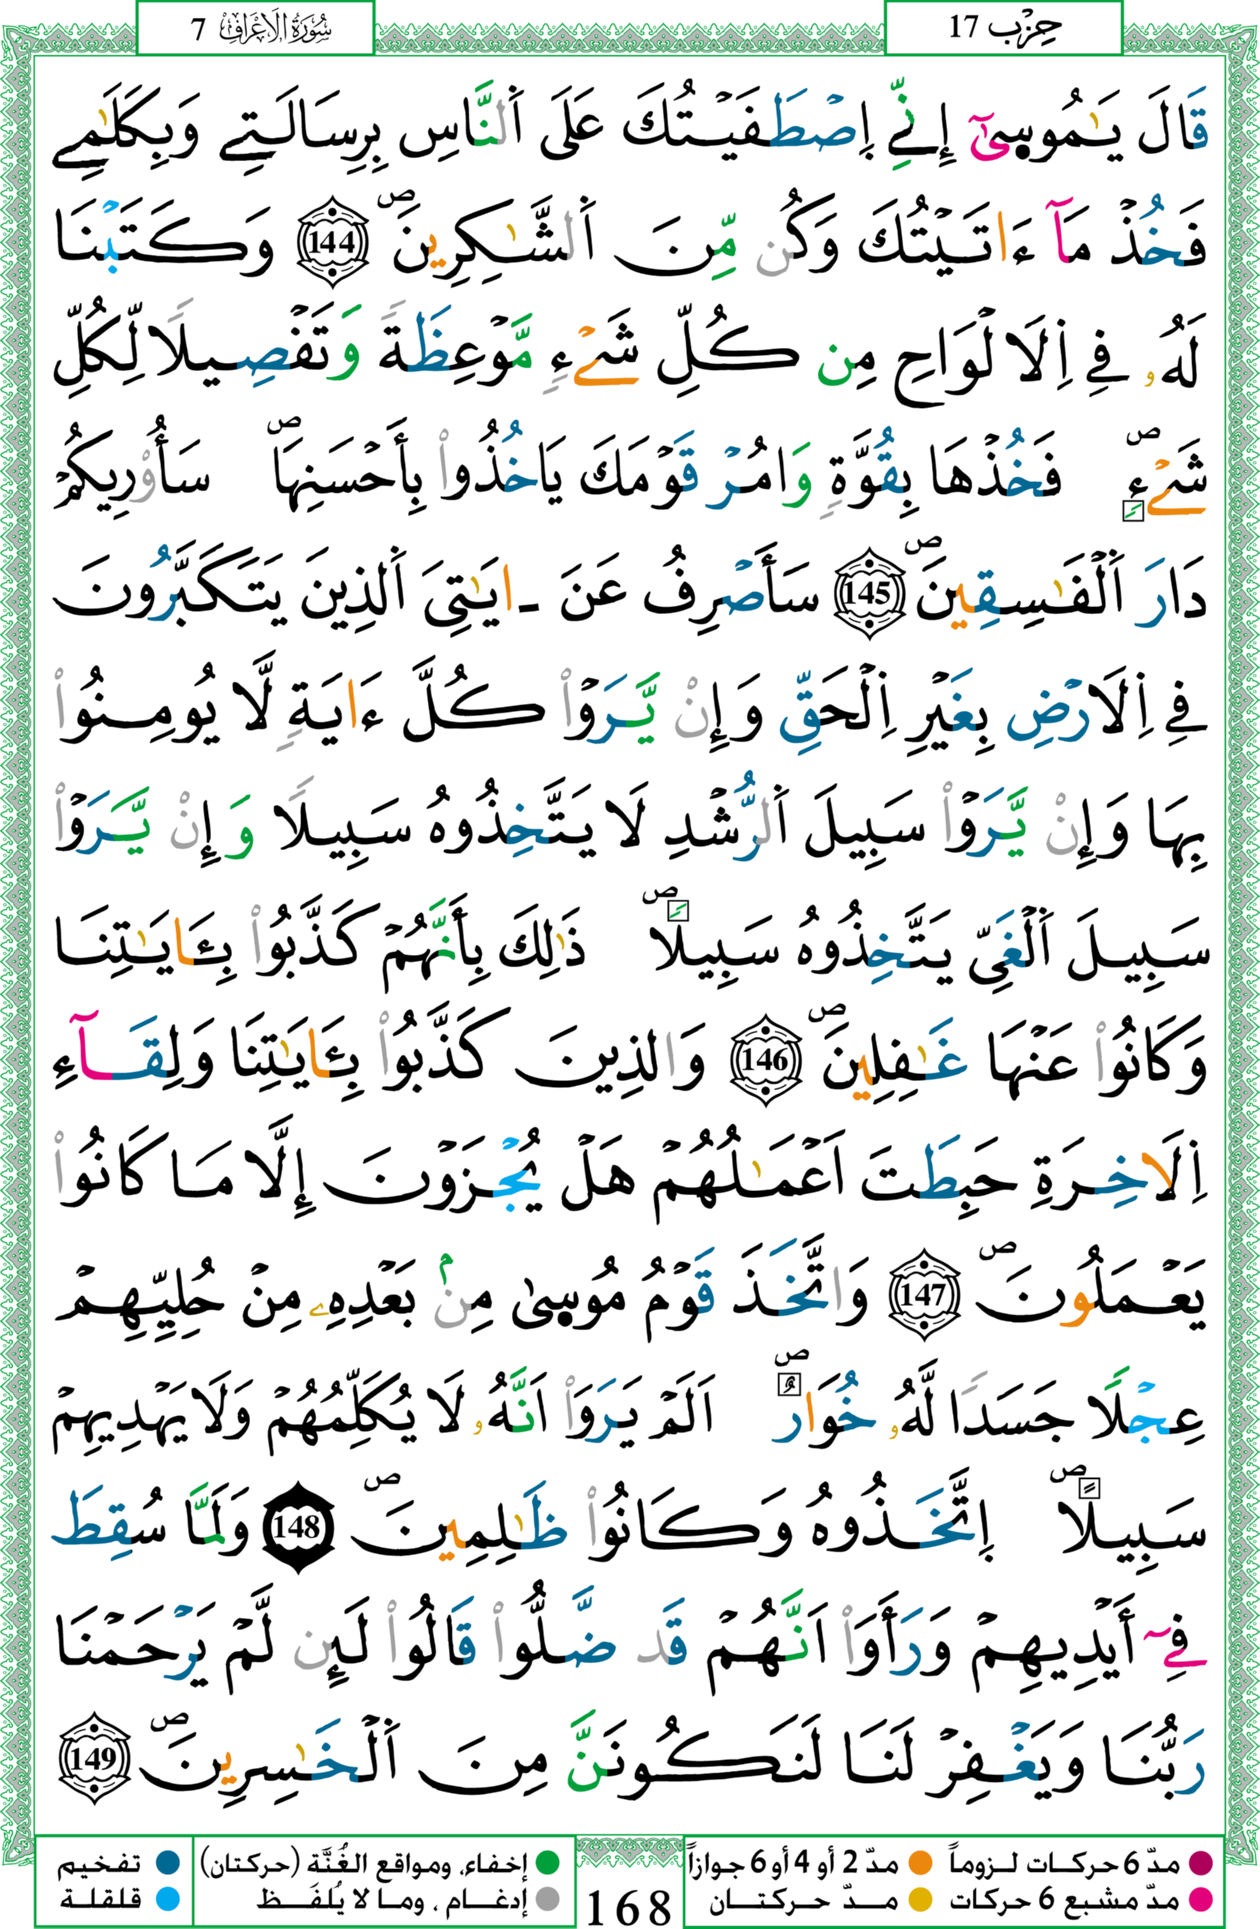 حِزْب 17
سُورَةُ الَاعْرَافِ 7
قَالَ يَٰمُوسِىٰٓ إِنِّے اِ۪صْطَفَيْتُكَ عَلَى اَ۬لنَّاسِ بِرِسَالَتِے وَبِكَلَٰمِے
فَخُذْ مَآ ءَاتَيْتُكَ وَكُن مِّنَ اَ۬لشَّٰكِرِينَۖ 144 وَكَتَبْنَا
لَهُۥ فِے اِ۬لَالْوَاحِ مِن كُلِّ شَےْءٖ مَّوْعِظَةٗ وَتَفْصِيلاٗ لِّكُلِّ
شَےْءٖۖ فَخُذْهَا بِقُوَّةٖ وَامُرْ قَوْمَكَ يَاخُذُواْ بِأَحْسَنِهَاۖ سَأُوْرِيكُمْ
دَارَ اَ۬لْفَٰسِقِينَۖ 145 سَأَصْرِفُ عَنَ ـ ايَٰتِىَ اَ۬لذِينَ يَتَكَبَّرُونَ
فِے اِ۬لَارْضِ بِغَيْرِ اِ۬لْحَقِّ وَإِنْ يَّرَوْاْ كُلَّ ءَايَةٖ لَّا يُومِنُواْ
بِهَا وَإِنْ يَّرَوْاْ سَبِيلَ اَ۬لرُّشْدِ لَا يَتَّخِذُوهُ سَبِيلاٗ وَإِنْ يَّرَوْاْ
سَبِيلَ اَ۬لْغَىِّ يَتَّخِذُوهُ سَبِيلاٗۖ ذَٰلِكَ بِأَنَّهُمْ كَذَّبُواْ بِـَٔايَٰتِنَا
وَكَانُواْ عَنْهَا غَٰفِلِينَۖ 146 وَالذِينَ كَذَّبُواْ بِـَٔايَٰتِنَا وَلِقَآءِ
اِ۬لَاخِرَةِ حَبِطَتَ اَعْمَٰلُهُمْ هَلْ يُجْزَوْنَ إِلَّا مَا كَانُواْ
يَعْمَلُونَۖ 147 وَاتَّخَذَ قَوْمُ مُوسِىٰ مِنۢ بَعْدِهِۦ مِنْ حُلِيِّهِمْ
عِجْلاٗ جَسَداٗ لَّهُۥ خُوَارٌۖ اَلَمْ يَرَوَاْ اَنَّهُۥ لَا يُكَلِّمُهُمْ وَلَا يَهْدِيهِمْ
سَبِيلاًۖ اِ۪تَّخَذُوهُ وَكَانُواْ ظَٰلِمِينَۖ 148 وَلَمَّا سُقِطَ
فِےٓ أَيْدِيهِمْ وَرَأَوَاْ اَنَّهُمْ قَد ضَّلُّواْ قَالُواْ لَئِن لَّمْ يَرْحَمْنَا
رَبُّنَا وَيَغْفِرْ لَنَا لَنَكُونَنَّ مِنَ اَ۬لْخَٰسِرِينَۖ 149
مدّ 6 حركات لـزوماً مدّ 2 أو 4 أو 6 جوازاً
مدّ مشبع 6 حركات مــدّ حــركتــان
168
إخفاء، ومواقع الغُنَّة (حركتان) تفخيم
إدغـام ، ومـا لا يُلفَـظ قلقلة